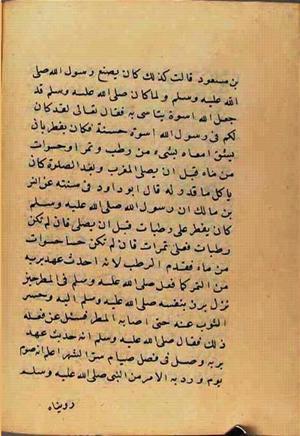 بن مسعود قالت كذلك كان يصنع رسول الله صلى
الله عليه وسلم ولما كان صلى الله عليه وسلم قد
جعل الله اسوة يتاسى به فقال تعالى لقد كان
لكم فى رسول الله اسوة حسنة فكان يفطر بان
امعاه بشىء من رطب وتمر او حسوات
من ماء قبل ان يصلى المغرب وبعد الصلوة كان
ياكل ما قدر له قال ابو داود فى سننه عن انس
بن مالك ان رسول الله صلى الله عليه وسلم
كان يفطر على رطبات قبل ان يصلى فان لم تكن
رطبات فعلى تمرات فان لم تكن حسا حسوات
من ماء فقدم الرطب لانه احدث عهد بربه
من التمر كما فعل صلى الله عليه وسلم فى المطر حين
نزل برز بنفسه صلى الله عليه وسلم اليه وحسر
الثوب عنه حتى اصابه المطر فسئل عن فعله
ذلك فقال صلى الله عليه وسلم انه حديث عهد
بربه وصل فى فصل صيام سرر الشهر اعلم انه صوم
يوم ورد به الامر من النبى صلى الله عليه وسلم
روينا